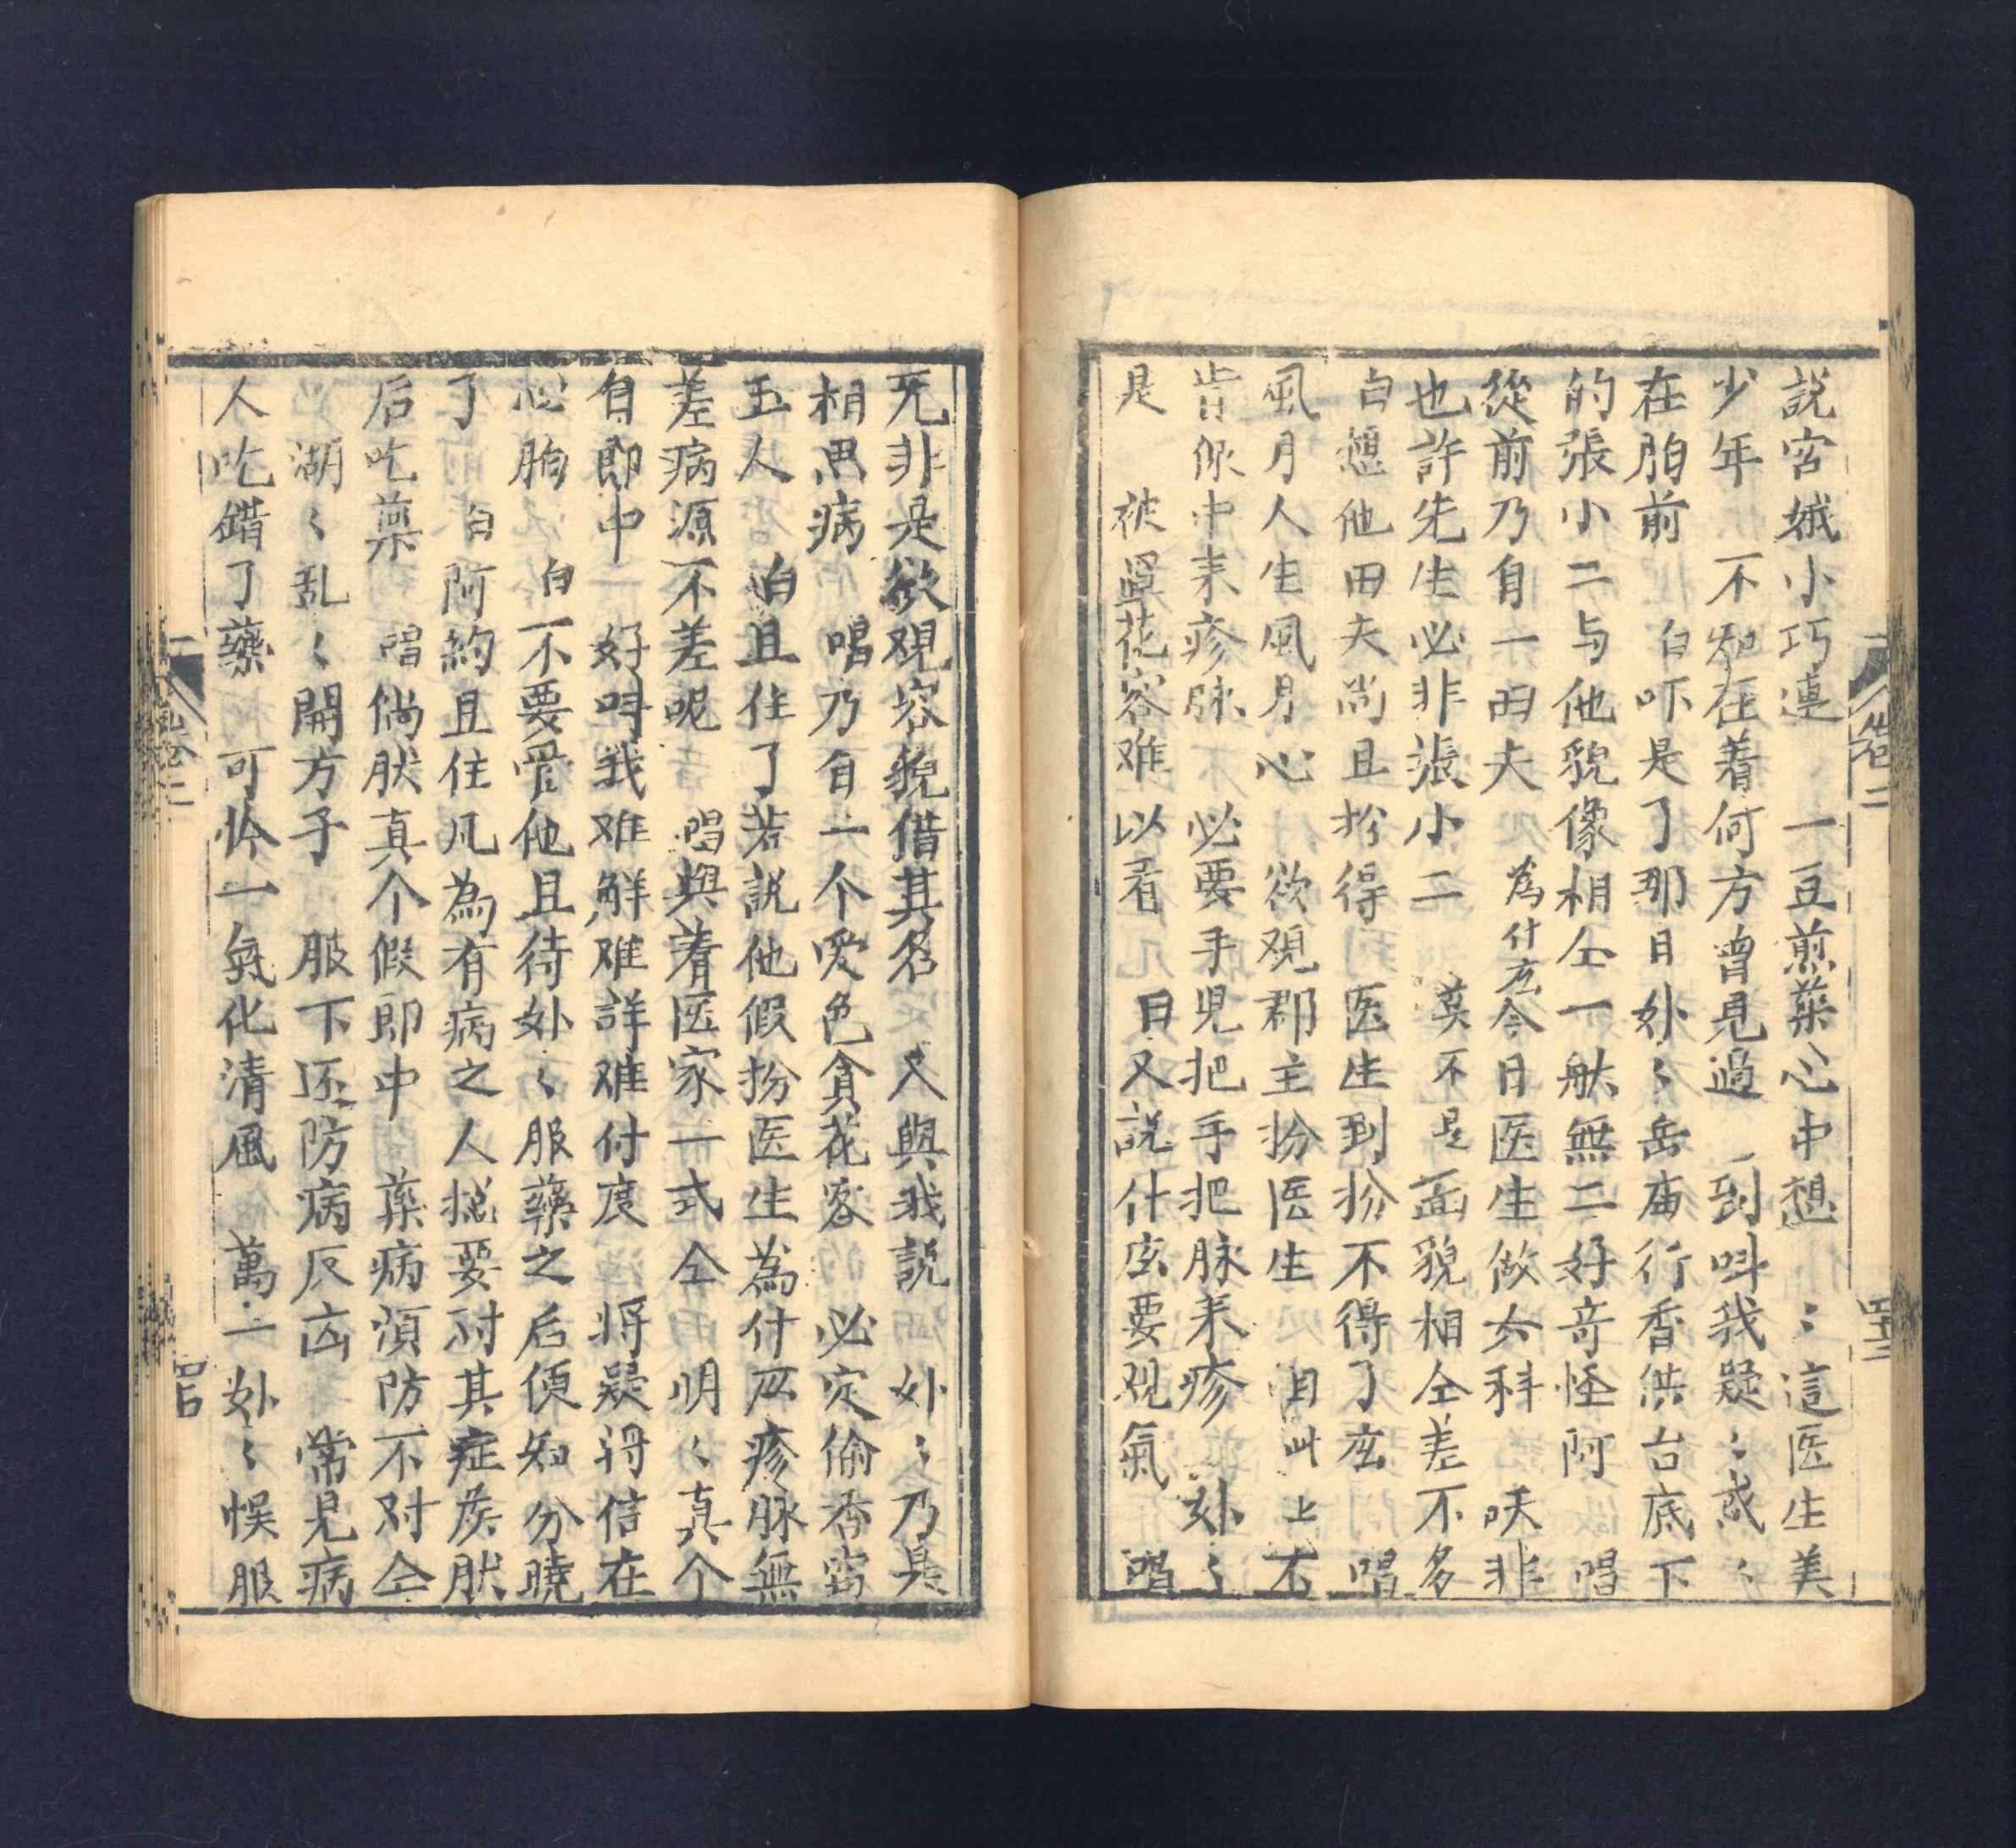 說宮娥小巧連 一豆煎葉心中想 〻這医生美
少年 不知在着何方曾見過 到叫我疑〻惑〻
在胸前 白吓是了那日妙〻岳庙行香供台底下
的張小二与他貌像相仝一般無二好奇怪阿 唱
從前乃自一田夫 為什庅今日医生做女科 唉非
也許先生必非張小二 莫不是面貌相仝差不多
白想他田夫尚且扮得 医生到扮不得了庅 唱
風月人生風月心 欲观郡主扮医生 白此上不
肯依中来疹脉 必要手児把手把脉来疹 妙〻
是 被罩花容难以看 白又說什庅要观氣 唱
无非是欲观容貌借其名 又與我説 妙〻乃是
相思病 唱乃自一个愛色貪花客 必定偷香窃
玉人 白且住了若説他假扮医生為什庅疹脉無
差病源不差呢 唱與着医家一式仝 明〻真个
自郎中 好呌我难解难詳难付度 将疑将信在
心胸 白不要管他且待妙〻服藥之后便知分曉
了 白阿約且住凡為有病之人摠要对其症候肰
后吃藥 唱倘肰真个假郎中 葉病須防不对仝
湖〻乱〻開方子 服下还防病反凶 常見病
人吃錯了藥 可怜一氣化清風 萬一妙〻悞服
卷二
四三
卷二